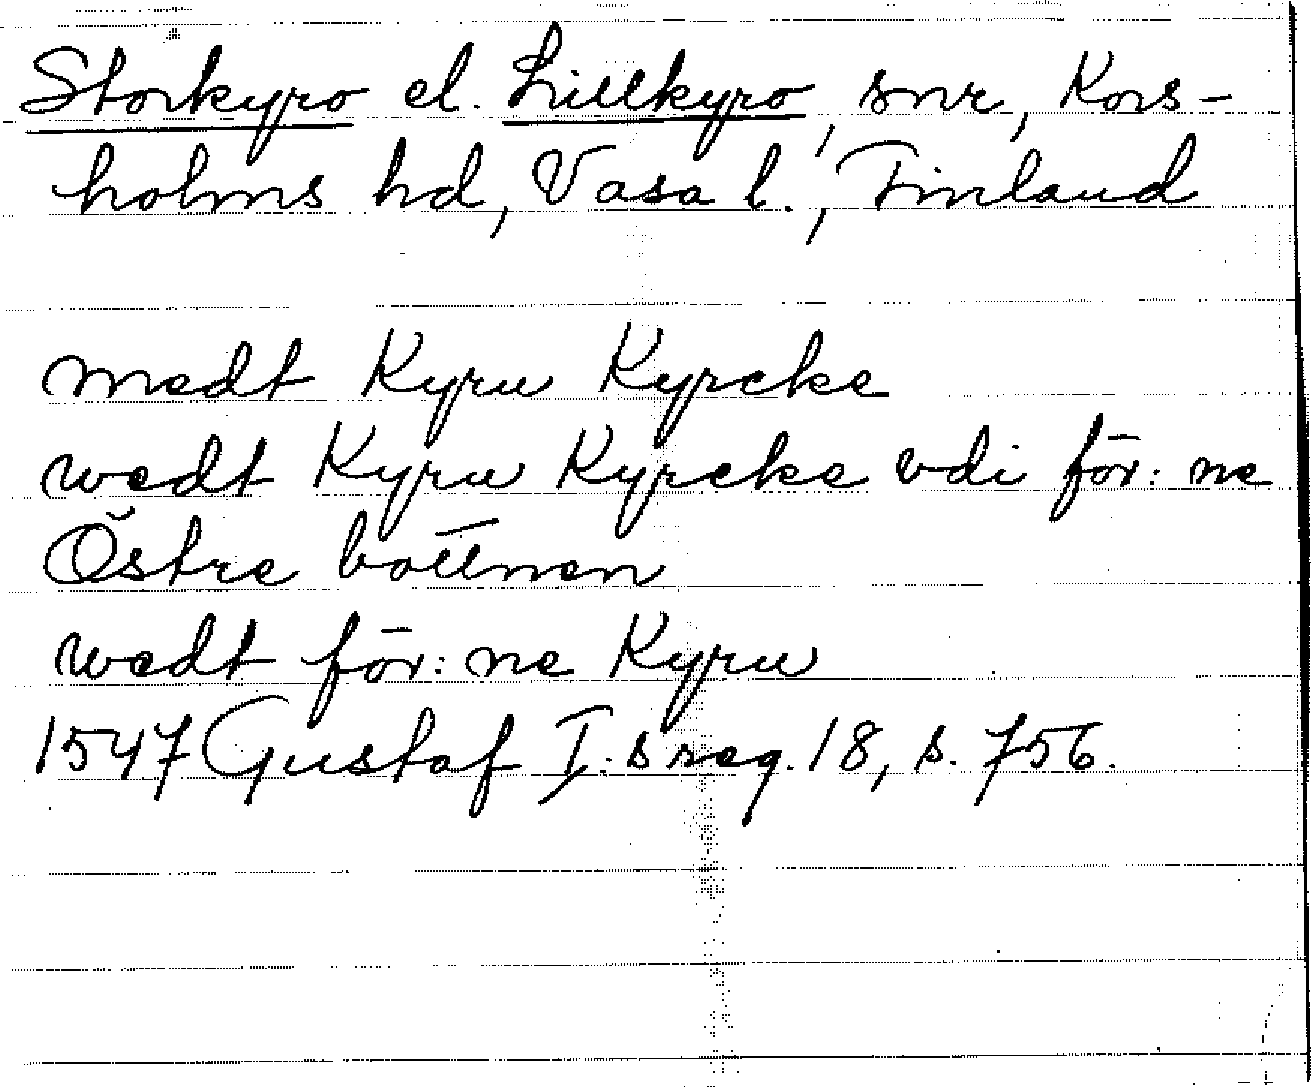 Storkyro el. Lillkyro, snr, Kors-
holms hd, Vasa l., Finland
medt Kyru Kyrcke
wedt Kyru Kyrcke vdi för: ne
Östre bottnen
wedt för: ne Kyru
1547 Gustaf I:s reg. 18, s. 756.